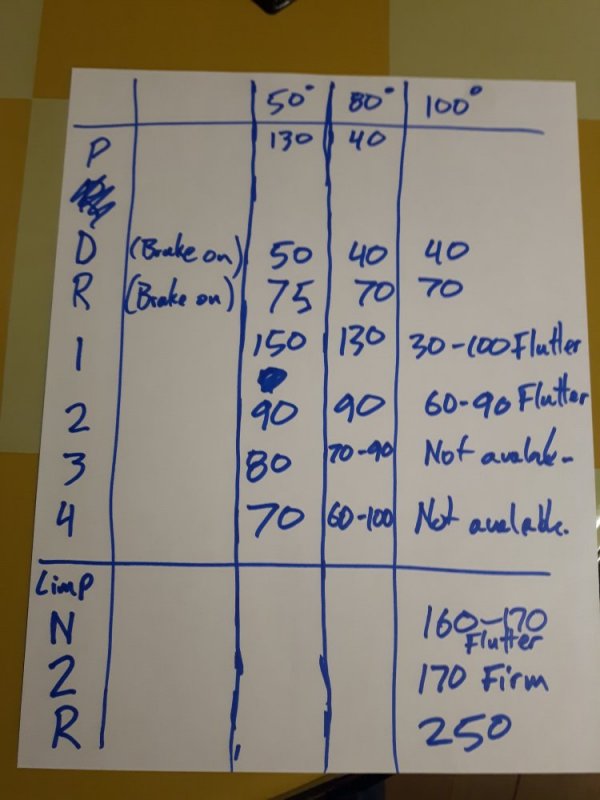 50° 80° 100°
P 130 40
D (Brake on) 50 40 40
R (Brake on) 75 70 70
1 150 130 30-100 Flutter
2 90 90 60-90 Flutter
3 80 70-90 Not avalable
4 70 60-100 Not available.
Limp
N 160-170
Flutter
2 170 Firm
R 250